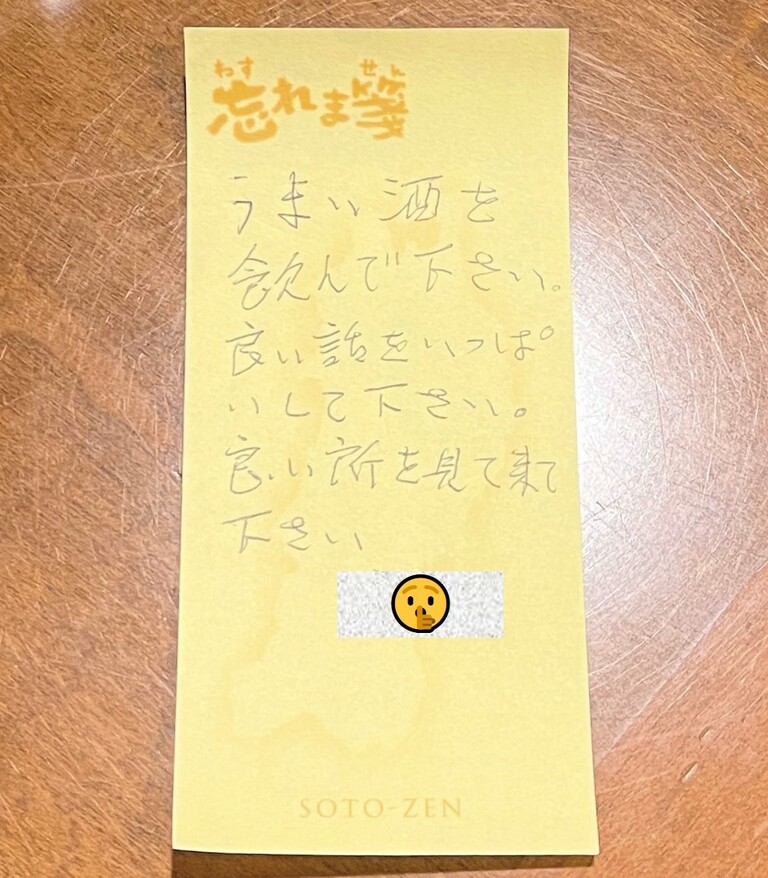 わす せん
忘れま箋
うまい酒を
飲んで下さい。
良い話をいっぱ
いして下さい。
良い所を見て来て
下さい
SOTO-ZEN